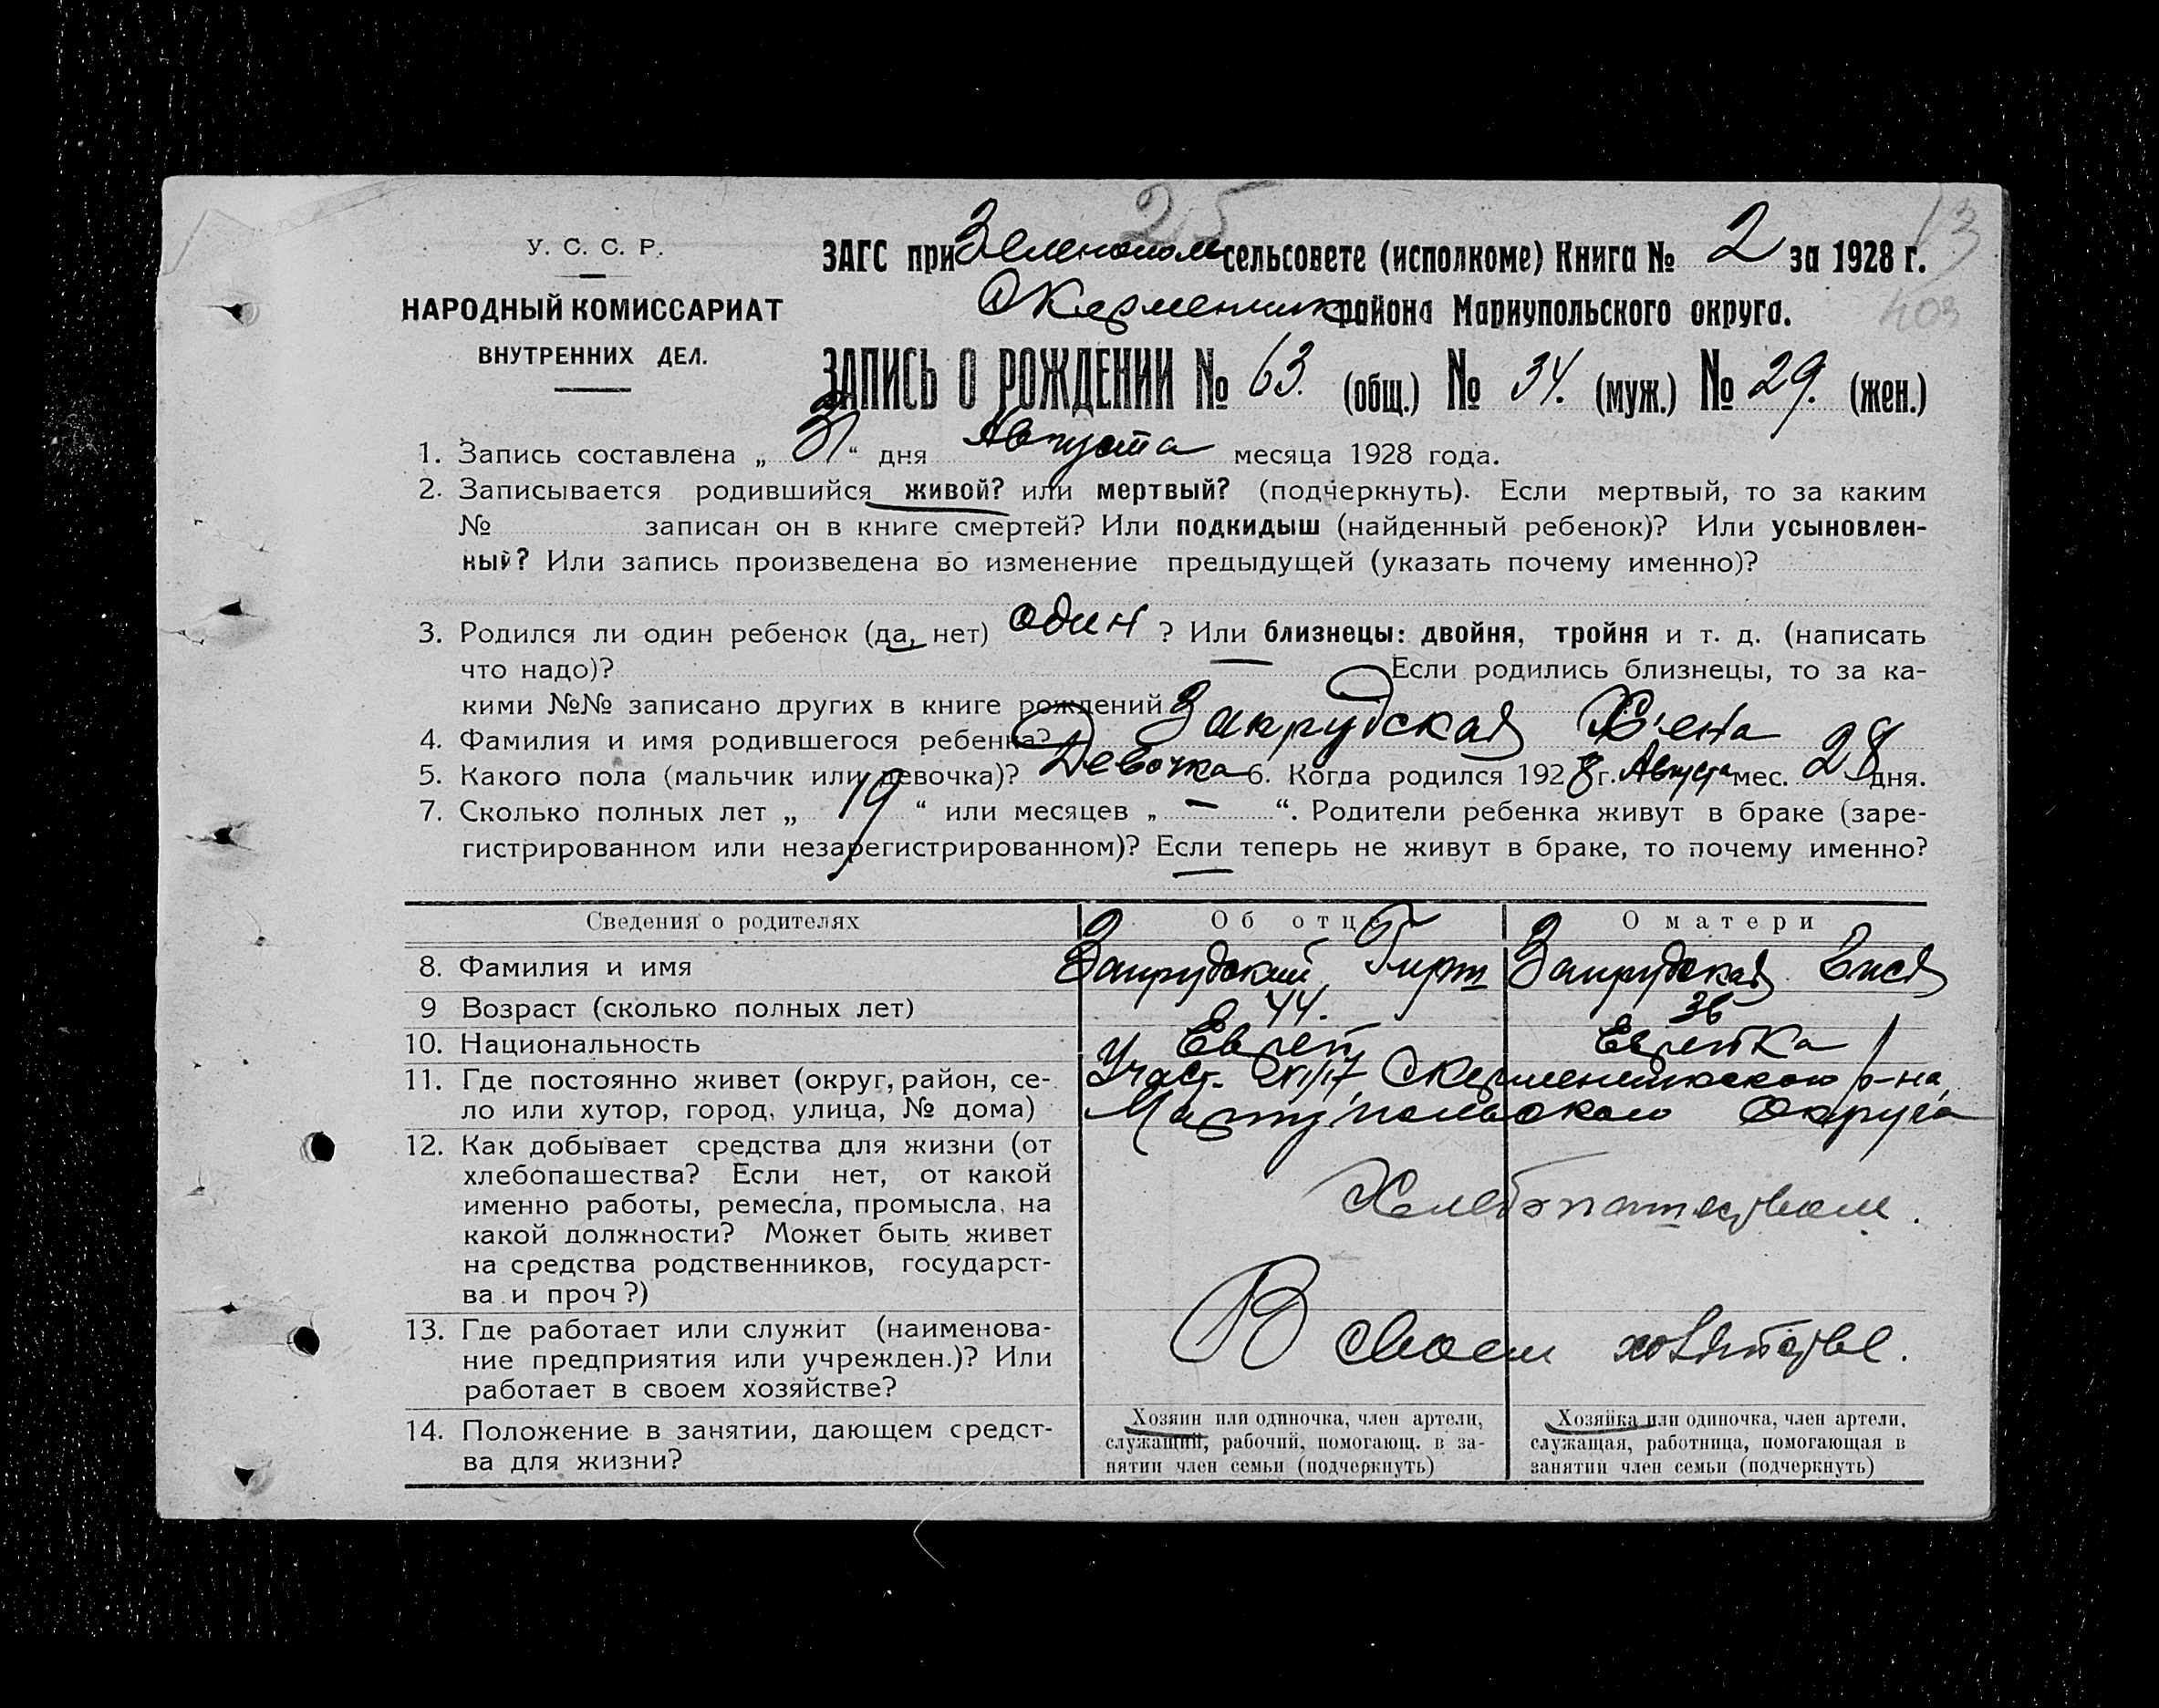 25
13
У. С. С. Р.
НАРОДНЫЙ КОМИССАРИАТ
ВНУТРЕННИХ ДЕЛ.
ЗАГС при Зеленополь сельсовете (исполкоме) Книга № 2 за 1928 г.
района Мариупольского округа.
403
ЗАПИСЬ О РОЖДЕНИИ № 63. (общ.) № 34. (муж.) № 29. (жен.)
1. Запись составлена „ 31 “ дня Августа месяца 1928 года.
2. Записывается родившийся живой? или мертвый? (подчеркнуть). Если мертвый, то за каким
№ записан он в книге смертей? Или подкидыш (найденный ребенок)? Или усыновлен-
ный? Или запись произведена во изменение предыдущей (указать почему именно)?
3. Родился ли один ребенок (да, нет) один ? Или близнецы: двойня, тройня и т. д. (написать
что надо)? Если родились близнецы, то за ка-
кими №№ записано других в книге рождений
4. Фамилия и имя родившегося ребенка? Закрудская
5. Какого пола (мальчик или девочка)? Девочка 6. Когда родился 1928 г. Августа мес. 28 дня.
7. Сколько полных лет „ 19 “ или месяцев „ — “. Родители ребенка живут в браке (заре-
гистрированном или незарегистрированном)? Если теперь не живут в браке, то почему именно?
Сведения о родителях Об отце О матери
8. Фамилия и имя Закрудский Закрудская
9 Возраст (сколько полных лет) 44. 36
10. Национальность Еврей Еврейка
11. Где постоянно живет (округ, район, се- Участ. р-на,
ло или хутор, город, улица, № дома) Мариупольского Округа
12. Как добывает средства для жизни (от
хлебопашества? Если нет, от какой
именно работы, ремесла, промысла, на Хлебопашеством.
какой должности? Может быть живет
на средства родственников, государст-
ва и проч ?)
13. Где работает или служит (наименова-
ние предприятия или учрежден.)? Или В своем хозяйстве.
работает в своем хозяйстве?
14. Положение в занятии, дающем средст-
ва для жизни?
Хозяин или одиночка, член артели,
служащий, рабочий, помогающ. в за-
нятии член семьи (подчеркнуть)
Хозяйка или одиночка, член артели,
служащая, работница, помогающая в
занятии член семьи (подчеркнуть)